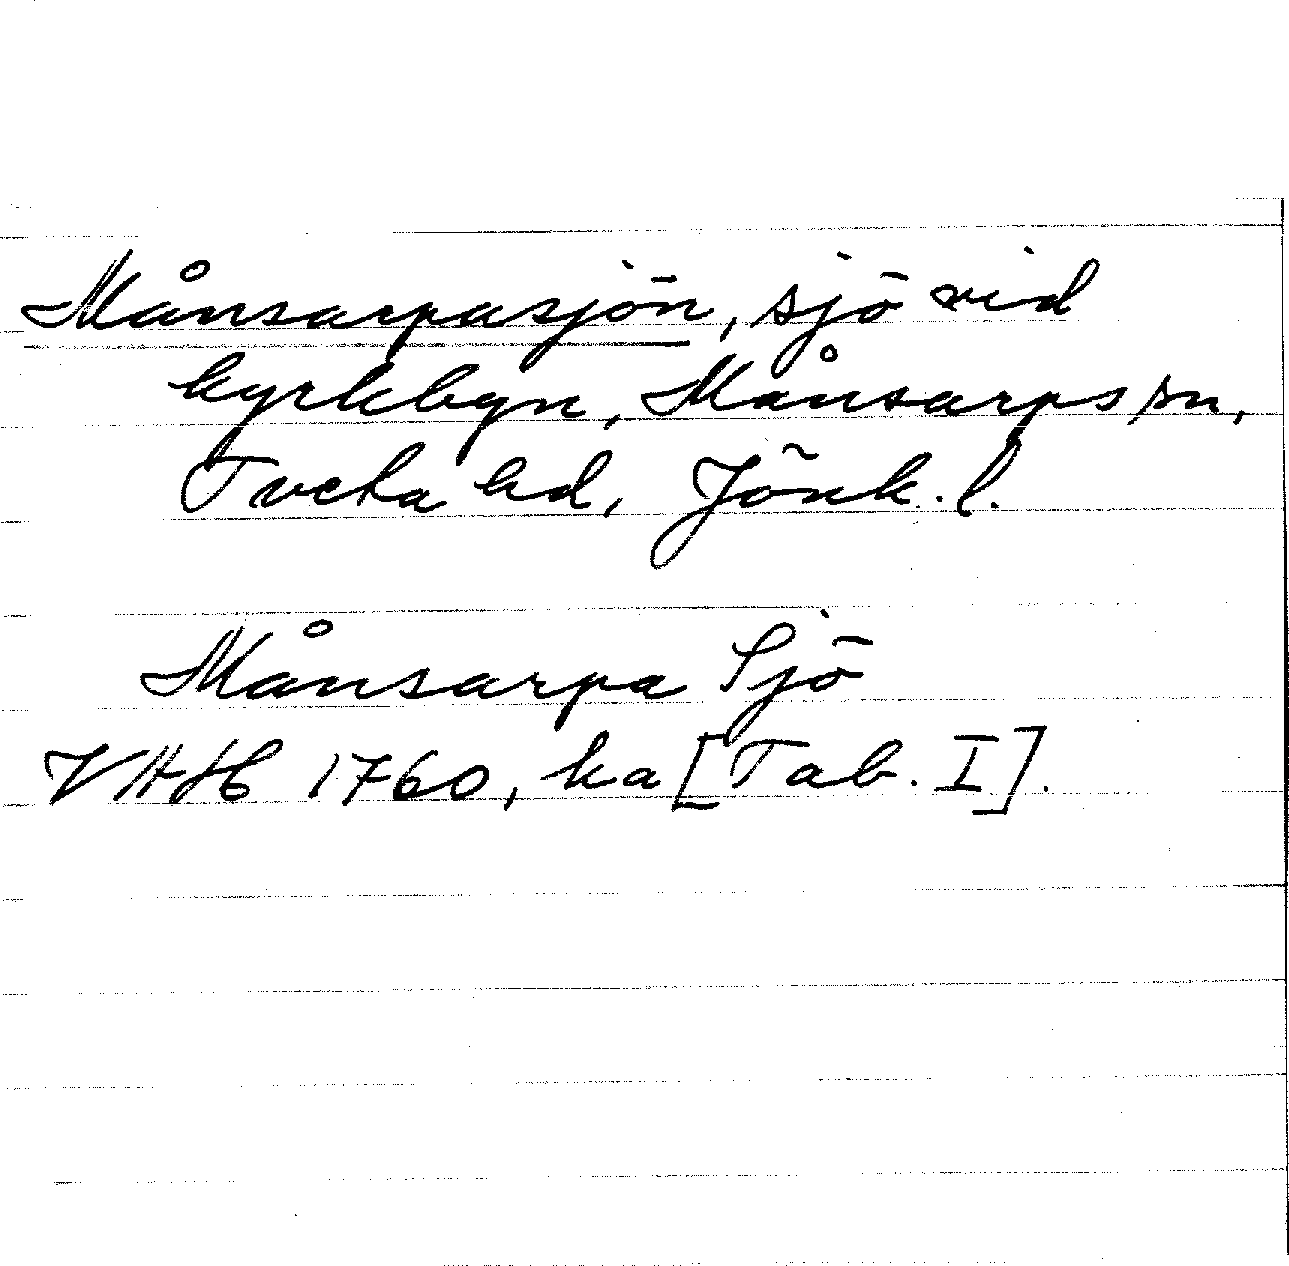 Månsarpasjön, sjö vid
kyrkbyn, Månsarps sn,
Tveta hd, Jönk. l.
Månsarpa Sjö
VHAH 1760, ka [Tab. I].